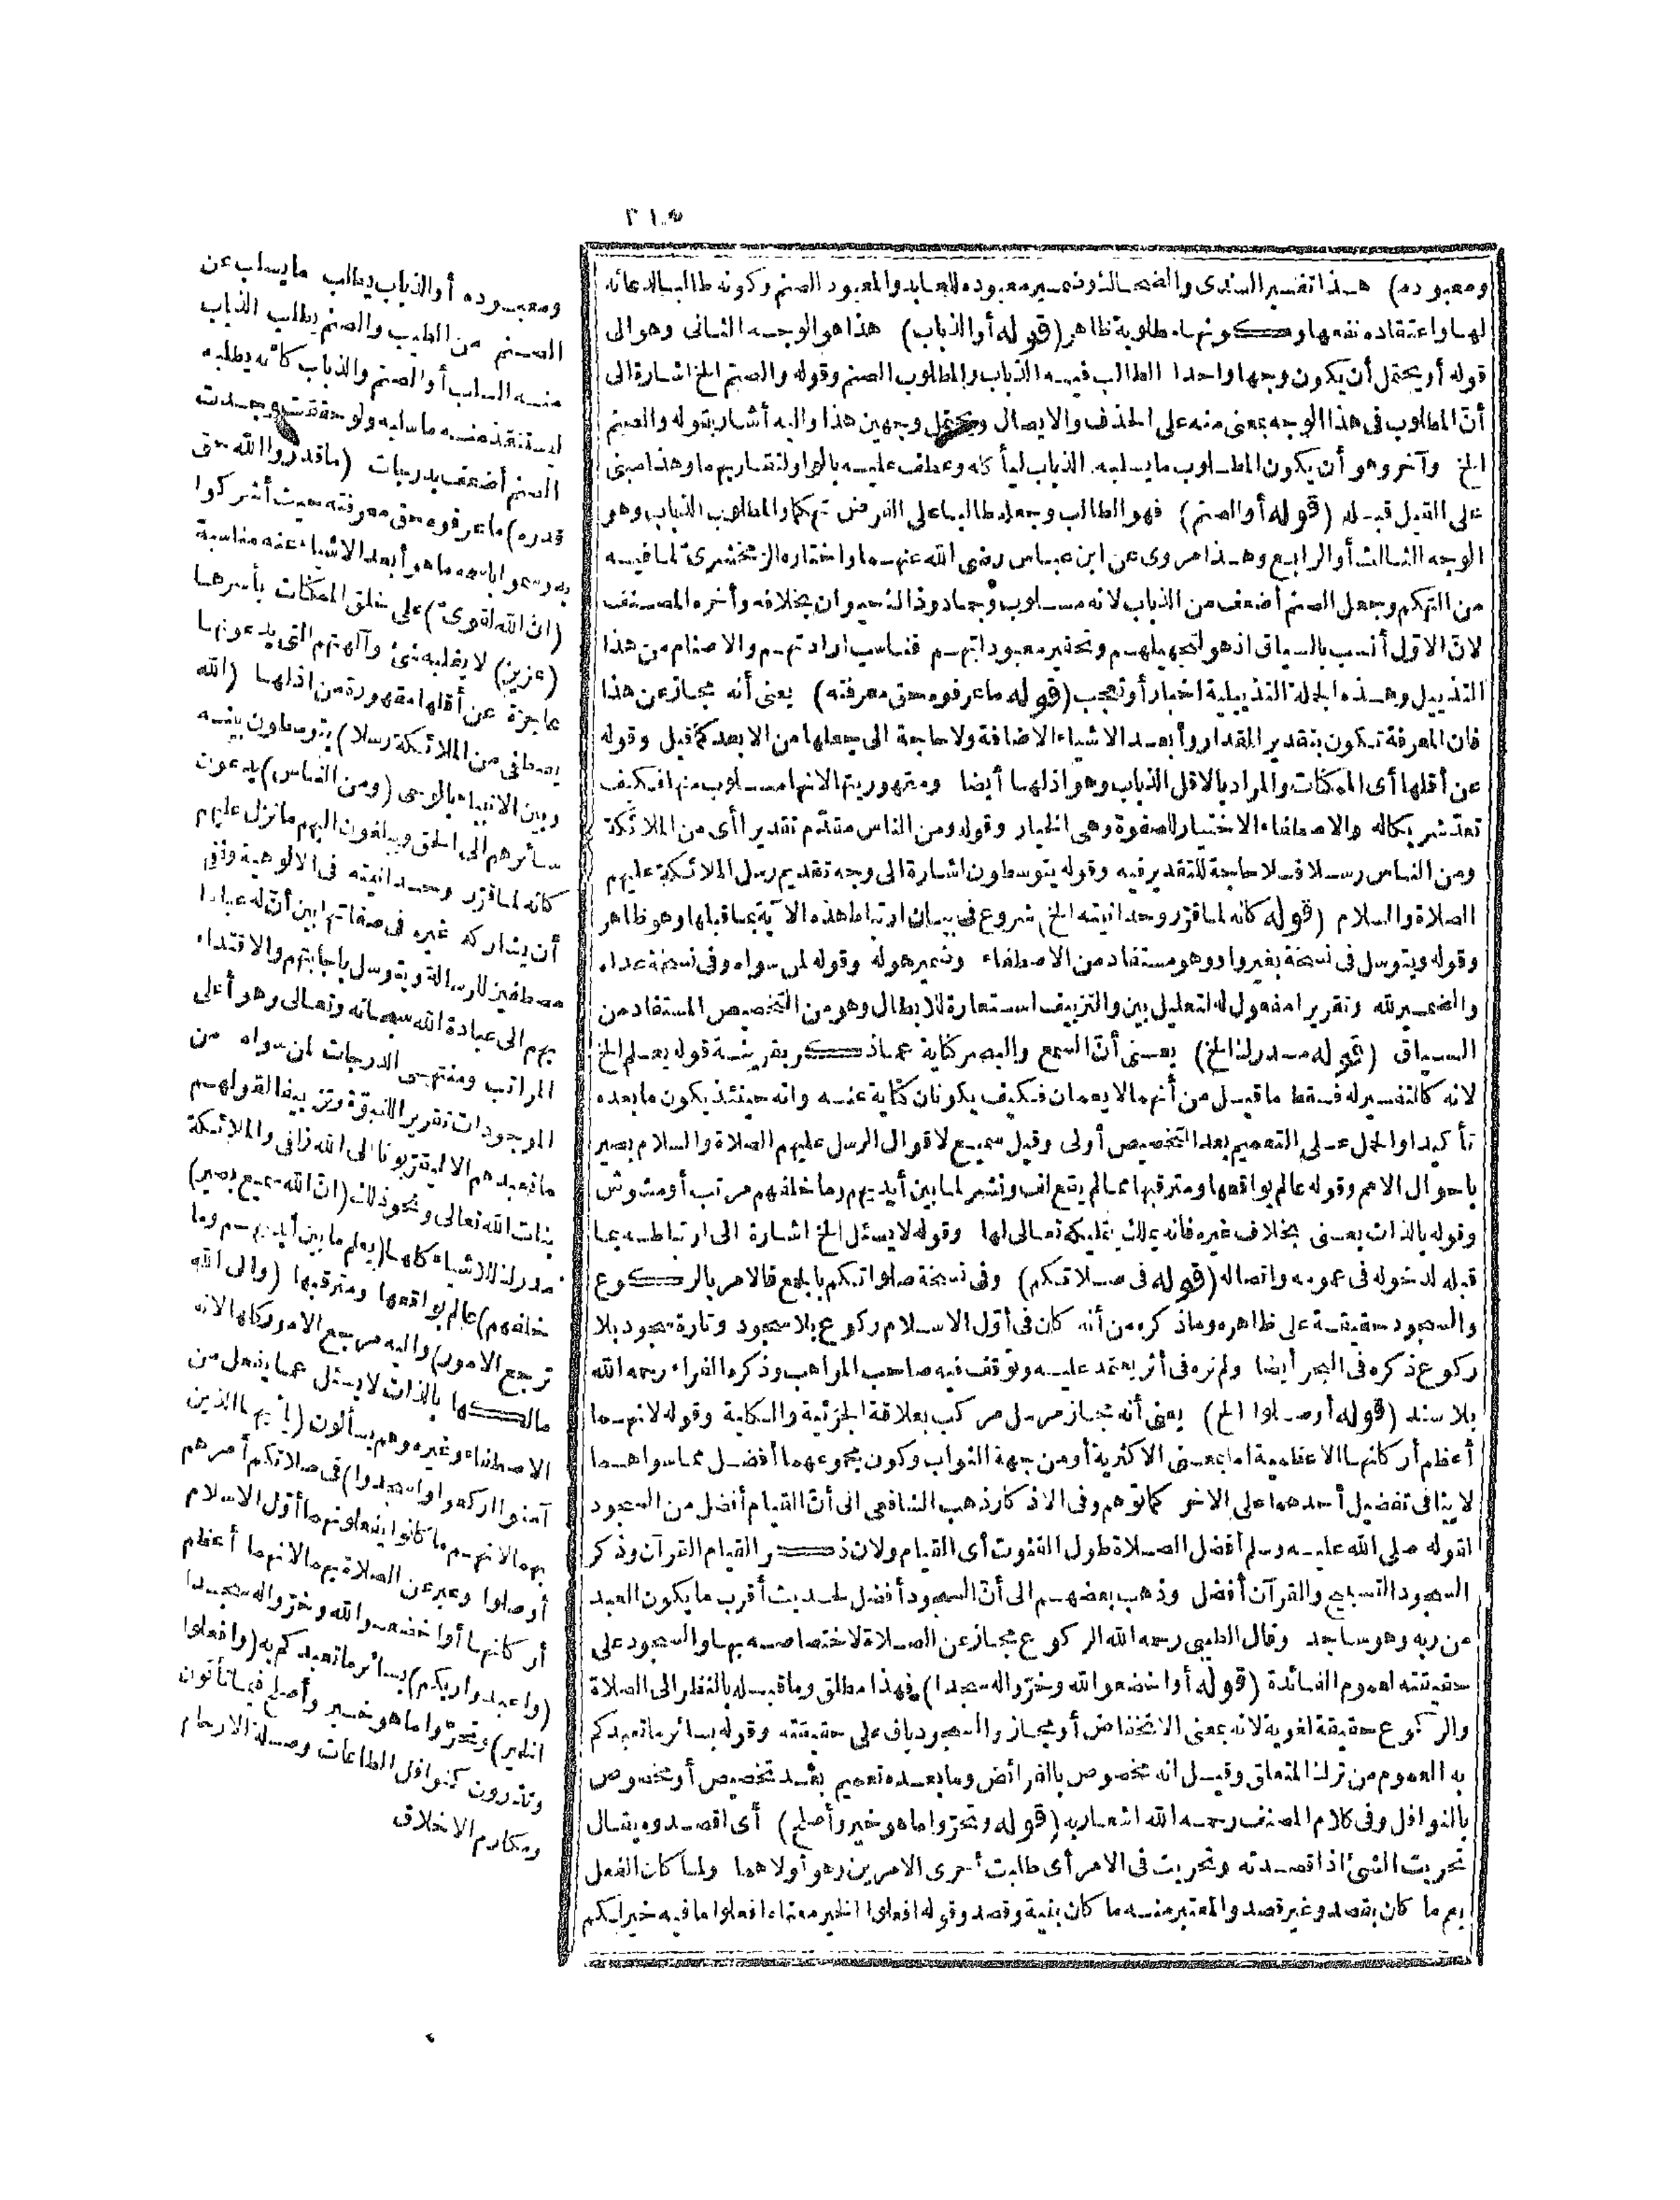 ٣١٥
ومعبوده) هـذا تفسير السدى والضحاك وضمير معبوده للعابد والمعبود الصنم وكونه طالبا لدعائه
لها واعتقاده نفعها وكونها مطلوبة ظاهر (قوله أو الذباب) هذا هو الوجـه الثانى وهو الى
قوله أو يحتمل أن يكون وجها واحدا الطالب فيـه الذباب والمطلوب الصنم وقوله والصنم الخ اشارة الى
أنّ المطلوب فى هذا الوجه بمعنى منه على الحذف والايصال ويحتمل وجهين هذا واليه أشار بقوله والصنم
الخ وآخر وهو أن يكون المطلوب ما يسلبه الذباب ليأكله وعطف عليـه بالواو لتقاربهما وهذا مبنى
على القيل قبله (قوله أو الصنم) فهو الطالب وجعله طالبا على الفرض تهكما والمطلوب الذباب وهو
الوجه الثالث أو الرابع وهـذا مروى عن ابن عباس رضى الله عنهـما واختاره الزمخشرىّ لما فيـه
من التهكم وجعل الصنم أضعف من الذباب لانه مسلوب وجماد وذا لـحيوان بخلافه وأخره المصـنف
لانّ الاوّل أنسب بالسياق اذ هو لتجهيلهـم وتحقير معبوداتهـم فناسب ارادتهـم والاصنام من هذا
التذييل وهـذه الجملة التذييلية اخبار أو تعجب (قوله ما عرفوه حق معرفته) يعنى أنه مجاز عن هذا
فان المعرفة تكون بتقدير المقدار وأبعـد الاشياء الاضافة ولا حاجة الى جعلها من الابعد كما قيل وقوله
عن أقلها أى الممكنات والمراد بالاقل الذباب وهو أذلهـا أيضا ومقهوريتها لانها مسـلوب منها فكيف
تعدّ شريكا له والاصطفاء الاختيار للصفوة وهى الخيار وقوله ومن الناس مقدّم تقديرا أى من الملائكة
ومن النـاس رسـلا فـلا حاجة للتقدير فيه وقوله يتوسطون اشارة الى وجه تقديم رسل الملائكة عليهم
الصلاة والسلام (قوله كانه لما قرّر وحدانيته الخ) شروع فى بيـان ارتباط هذه الآية بما قبلها وهو ظاهر
وقوله ويتوسل فى نسخة بغير واو وهو مستفاد من الاصطفاء وضمير هو له وقوله لمن سواه وفى نسخة عداه
والضمـير لله وتقريرا مفعول له لتعليل بين والتزييف استعارة للابطال وهو من التخصيص المستفاد من
السـياق (قوله مـدرك الخ) يعـنى أنّ السمع والبصر كناية عما ذكر بقرينـة قوله يعـلم الخ
لانه كالتفسير له فسقط ما قيـل من أنهما لا يعمان فكيف يكونان كناية عنـه وانه حينئذ يكون ما بعده
تأكيدا والحمل عـلى التعميم بعد التخصيص أولى وقيل سميـع لاقوال الرسل عليهم الصلاة والسلام بصير
باحوال الامم وقوله عالم بواقعها ومترقبها مما لم يقع لف ونشر لما بين أيديهم وما خلفهم مرتب أو مشوش
وقوله بالذات يعـنى بخلاف غيره فانه يملك بتمليكه تعـالى لها وقوله لا يسئل الخ اشـارة الى ارتباطـه بمـا
قبله لدخوله فى عمومه واتصاله (قوله فى صـلاتكم) وفى نسخة صلواتكم بالجمع فالامر بالركوع
والسجود حقيقـة على ظاهره وما ذكره من أنه كان فى أوّل الاسـلام ركوع بلا سجود وتارة سجود بلا
ركوع ذكره فى البحر أيضا ولم نره فى أثر يعتمد عليـه وتوقف فيه صاحب المواهب وذكره الفراء رحمه الله
بلا سند (قوله أو صـلوا الخ) يعنى أنه مجاز مرسل مركب بعلاقة الجزئية والكلية وقوله لانهـما
أعظم أركانهـا الاعظمية اما بمعـنى الاكثرية أو من جهة الثواب وكون مجموعهما أفضـل مما سواهـما
لا ينافى تفضيل أحدهما على الآخر كما توهم وفى الاذكار ذهب الشافعى الى أنّ القيام أفضل من السجود
لقوله صلى الله عليـه وسلم أفضل الصـلاة طول القنوت أى القيام ولان ذكر القيام القرآن وذكر
السجود التسبيح والقرآن أفضل وذهب بعضهـم الى أنّ السجود أفضل لحـديث أقرب ما يكون العبد
من ربه وهو ساجد وقال الطيبى رحمه الله الركوع مجـاز عن الصـلاة لاختصاصـه بهـا والسجود على
حقيقته لعموم الفـائدة (قوله أو اخضعوا لله وخرّوا له سجدا) فهذا مطلق وما قبـله بالنظر الى الصلاة
والركوع حقيقة لغوية لانه بمعنى الانخفاض أو مجـاز والسجود باق على حقيقته وقوله بسائر ما تعبدكم
به العموم من ترك المتعلق وقيـل انه مخصوص بالفرائض وما بعـده تعميم بعـد تخصيص أو مخصوص
بالنوافل وفى كلام المصنف رحمـه الله اشعـار به (قوله وتحرّوا ما هو خير وأصلح) أى اقصـدوه يقـال
تحريت الشئ اذا قصـدته وتحريت فى الامر أى طلبت أحرى الامرين وهو أولاهما ولما كان الفعل
يعم ما كان بقصد وغير قصد والمعتبر منـه ما كان بنية وقصد وقوله افعلوا الخير معناه افعلوا ما فيه خير لكم
ومعبـوده أو الذباب يطلب ما يسلب عن
الصـنم من الطيب والصنم يطلب الذباب
منـه السلب أو الصنم والذباب كأنه يطلبه
ليستنقذ منـه ما سلبه ولو حققت وجـدت
الصنم أضعف بدرجات (ما قدروا الله حق
قدره) ما عرفوه حق معرفته حيث أشركوا
به وسموا باسمه ما هو أبعد الاشياء عنه مناسبة
(ان الله لقوىّ) على خلق الممكنات بأسرهـا
(عزيز) لا يغلبه شئ وآلهتهم التى يدعونهـا
عاجزة عن أقلها مقهورة من أذلهـا (الله
يصطفى من الملائكة رسلا) يتوسطون بينـه
وبين الانبياء بالوحى (ومن الناس) يدعون
سـائرهم الى الحق ويبلغون اليهم ما نزل عليهم
كانه لما قرّر وحـدانيته فى الالوهية ونفى
أن يشاركه غيره فى صفاتها بين أنّ له عبادا
مصطفين للرسالة ويتوسل باجابتهم والاقتداء
بهم الى عبادة الله سبحـانه وتعـالى وهو أعلى
المراتب ومنتهـى الدرجات لمن سواه من
الموجودات تقريرا للنبوّة وتزييفا لقولهـم
ما نعبدهم الا ليقرّبونا الى الله زلفى والملائكة
بنات الله تعالى ونحو ذلك (ان الله سميع بصير)
مدرك للاشياء كلها (يعلم ما بين أيديهـم وما
خلفهم) عالم بواقعها ومترقبها (والى الله
ترجع الامور) واليه مرجع الامور كلها لانه
مالكها بالذات لا يسئل عما يفعل من
الاصطفاء وغيره وهم يسألون (يا أيهـا الذين
آمنوا اركعوا واسجدوا) فى صلاتكم أمرهم
بهما لانهـم ما كانوا يفعلونهما أوّل الاسلام
أو صلوا وعبر عن الصلاة بهما لانهما أعظم
أركانهـا أو اخضعـوا لله وخرّوا له سجـدا
(واعبـدوا ربكم) بسائر ما تعبدكم به (وافعلوا
الخير) وتحرّوا ما هو خـير وأصلح فيما تأتون
وتذرون كنوافل الطاعات وصـلة الارحام
ومكارم الاخلاق